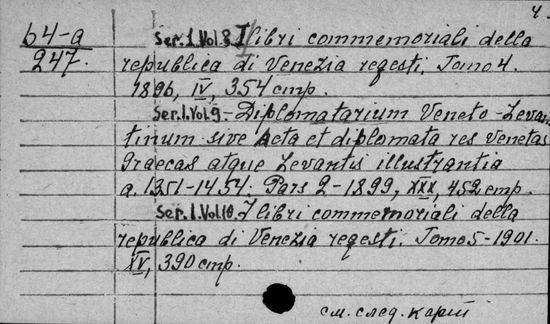 4.
64-a
247.
Ser.1.Vol.8 I libri commemoriali della
republica di Venezia regesti. Tomo 4.
1896, IV, 354 стр.
Ser.1.Vol.9 - Diplomatarium Veneto-Levan-
tinum sive Acta et diplomata res Venetas
Graecas atque Levantis illustrantia
a. 1351-1454. Pars 2 - 1899, XXX, 452 стр.
Ser.1.Vol.10. I libri commemoriali della
republica di Venezia regesti. Tomo 5 - 1901.
XV, 390 стр.
см. след. карт